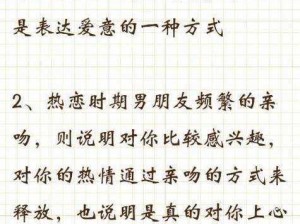 是表达爱意的一种方式
2、热恋时期男朋友频繁的亲
吻，则说明对你比较感兴趣，
对你的热情通过亲吻的方式来
释放，也说明是真的对你上心